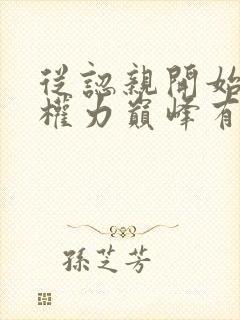 從認親開始
權力巔峰有
孫芝芳